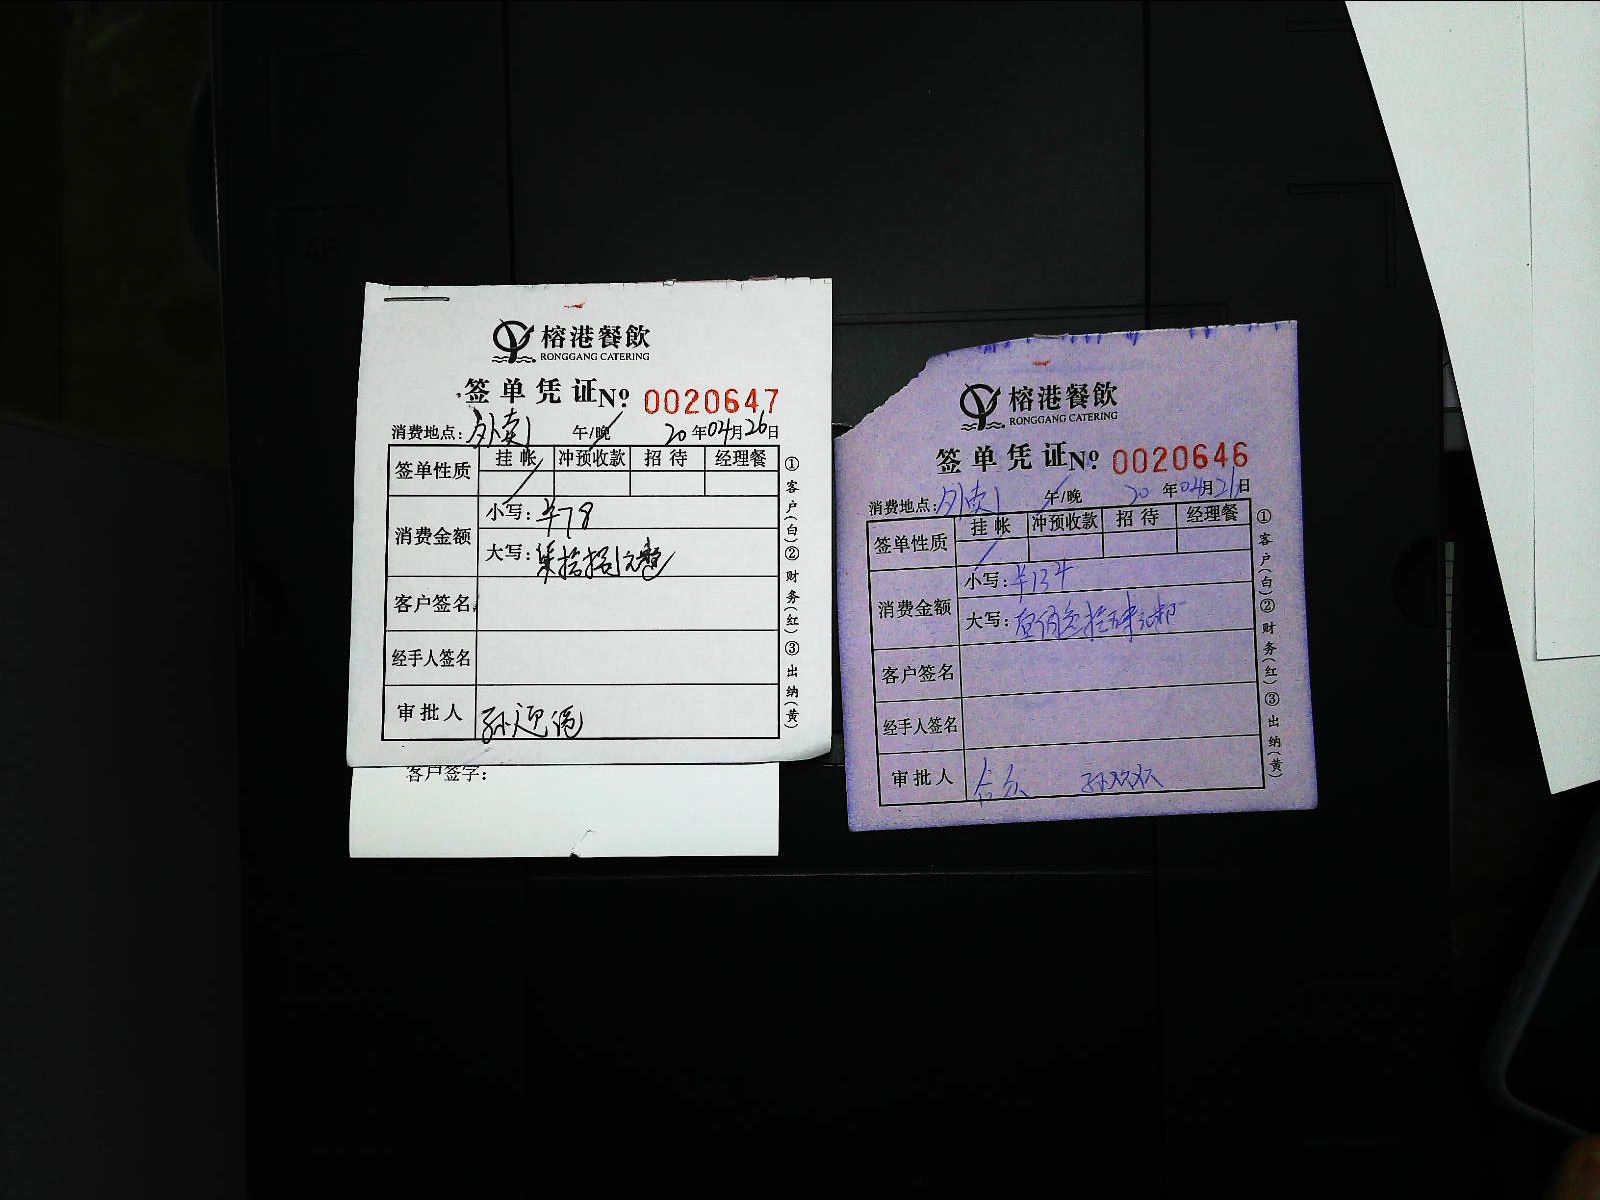 榕港餐飲
RONGGANG CATERING
签单凭证 Nº 0020647
消费地点：外卖 午/晚 20年04月26日
签单性质 挂帐 冲预收款 招待 经理餐
消费金额 小写：¥78
大写：柒拾捌元整
客户签名
经手人签名
审批人 孙
①客户（白）②财务（红）③出纳（黄）
客户签字：
榕港餐飲
RONGGANG CATERING
签单凭证 Nº 0020646
消费地点：外卖 午/晚 20年04月21日
签单性质 挂帐 冲预收款 招待 经理餐
消费金额 小写：¥134
大写：壹佰叁拾肆元
客户签名
经手人签名
审批人 孙双双
①客户（白）②财务（红）③出纳（黄）